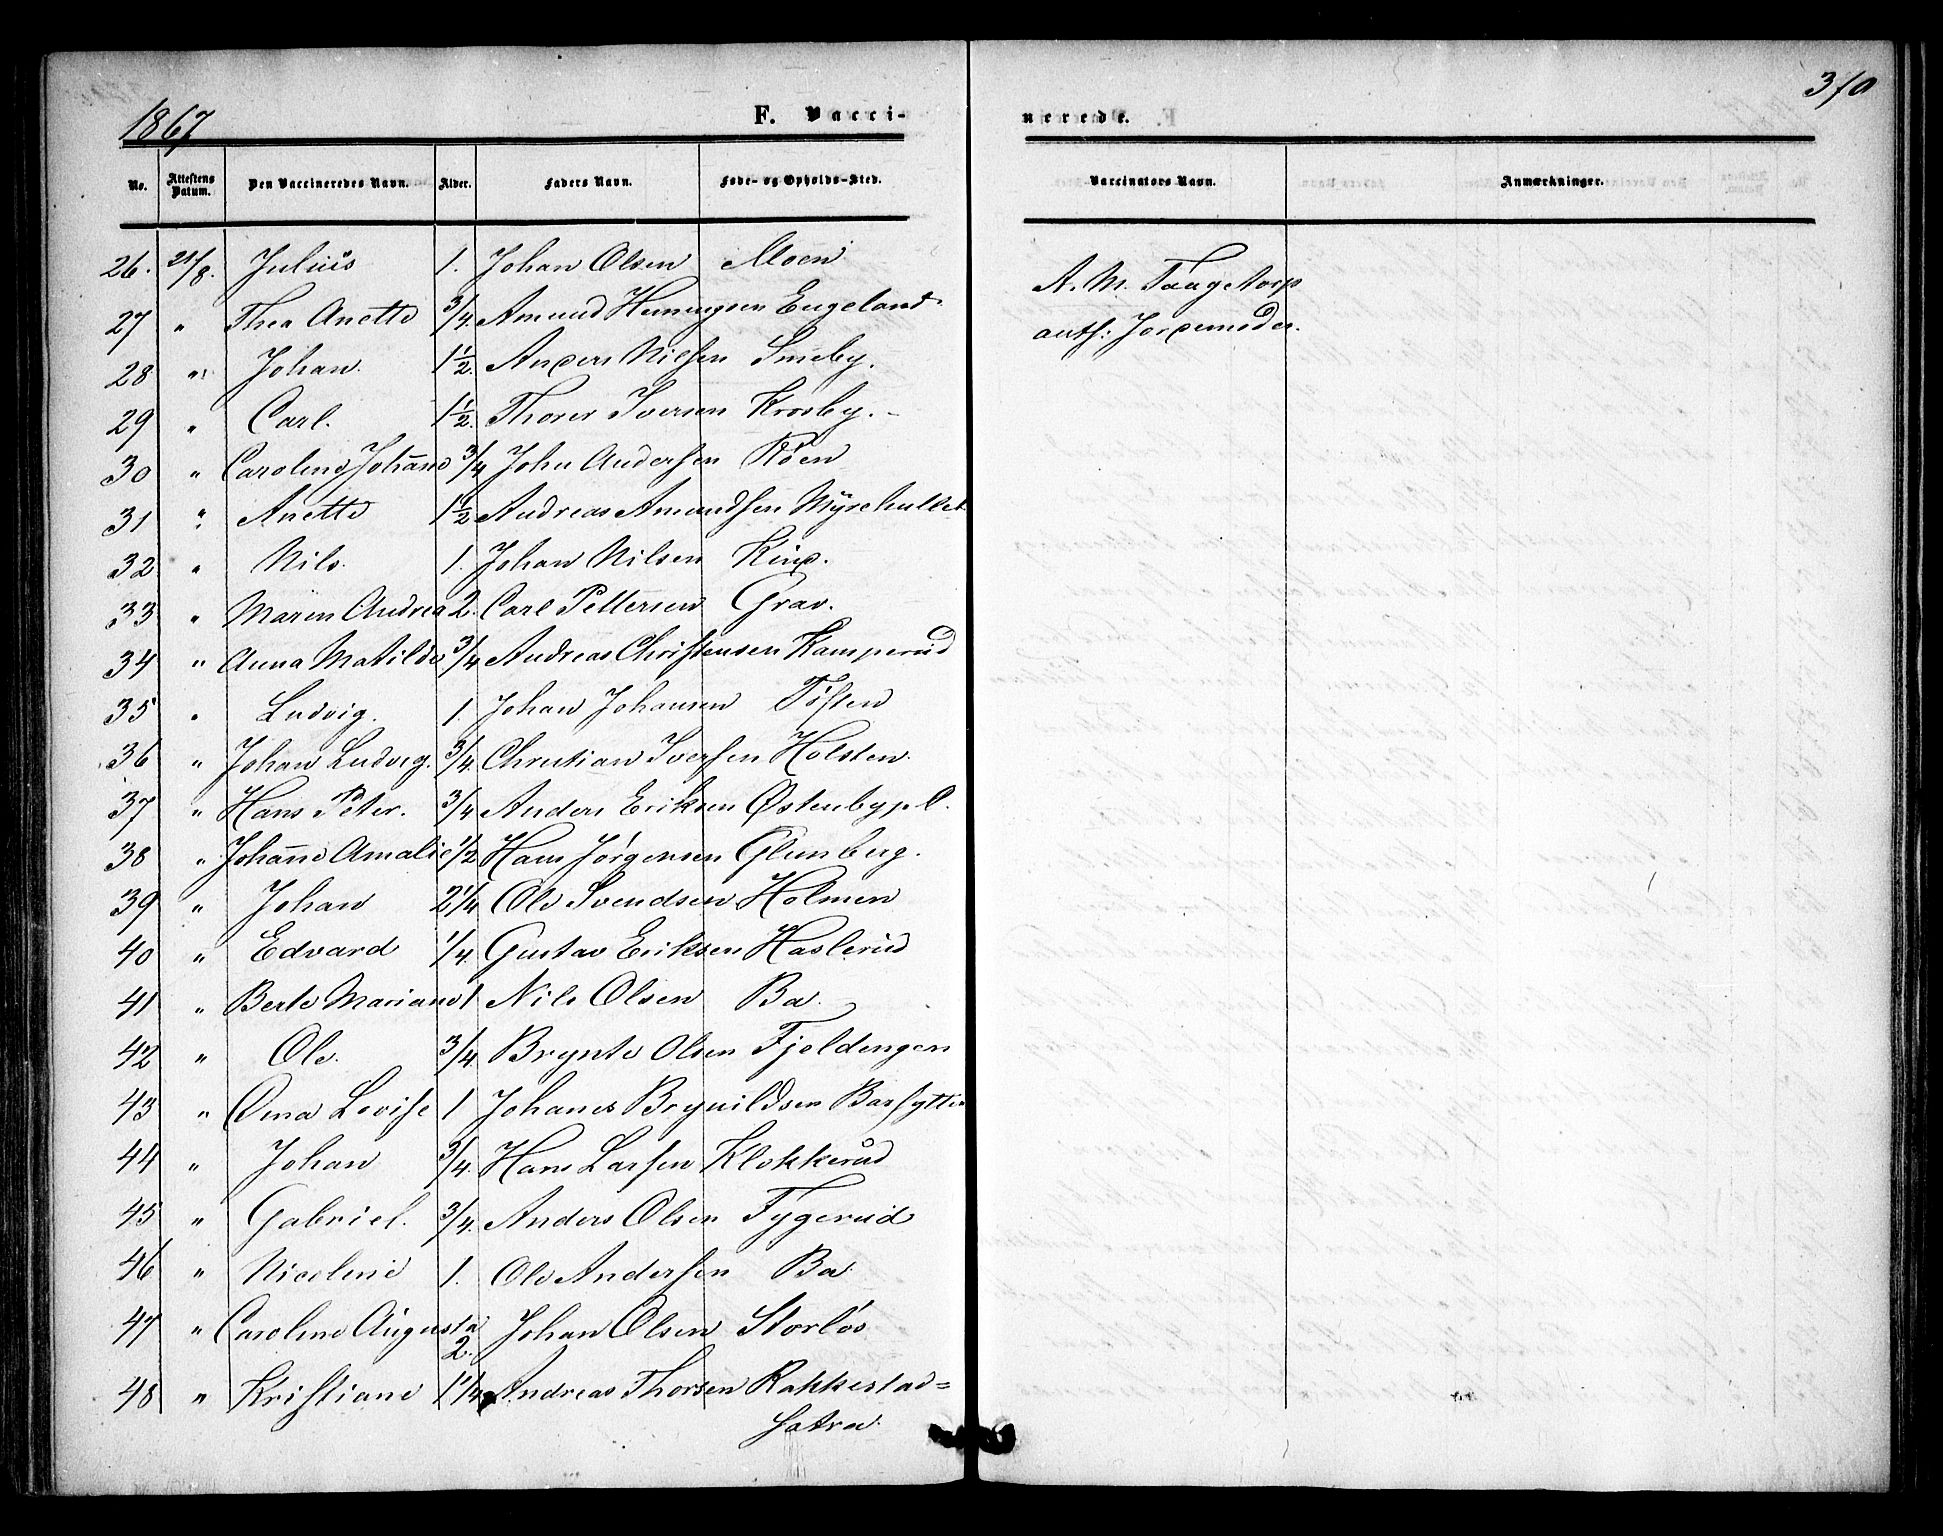 1867
F. Vacci-
nerede.
310
No. Attestens Datum. Den Vaccineredes Navn. Alder. Faders Navn. Føde- og Opholds-Sted. Vaccinators Navn. Anmærkninger.
26. 21/8. Julius 1. Johan Olsen Moen A. M. Taugetorp
27 " Thea Anette 3/4. Amund Henningsen Engeland auth: Jordemoder.
28 " Johan. 1 1/2. Anders Nilsen Smeby.
29 " Carl. 1 1/2. Thorer Iversen Krosby.
30 " Caroline Johane 3/4 John Andersen Röen
31 " Anette 1 1/2 Andreas Amundsen Myrehullet
32 " Nils. 1. Johan Nilsen
33 " Maren Andrea 2. Carl Pettersen Grav.
34 " Anna Matilde 3/4 Andreas Christensen Kamperud
35 " Ludvig. 1. Johan Johansen Töften
36 " Johan Ludvig. 3/4. Christian Iversen Holsten.
37 " Hans Peter. 3/4 Anders Eriksen Østenbypl.
38 " Johane Amalie 1/2 Hans Jörgensen Glenberg.
39 " Johan 2 1/4 Ole Svendsen Holmen
40 " Edvard 1/4. Gustav Eriksen Haslerud
41 " Berte Mariane 1 Nils Olsen Bø
42 " Ole. 3/4. Brynte Olsen Fjeldengen
43 " Lovise 1 Johanes Brynildsen
44 " Johan 3/4. Hans Larsen Klokkerud
45 " Gabriel. 3/4. Anders Olsen Tygerud
46 " Nicoline 1. Ole Andersen Bø
47 " Caroline Augusta 2. Johan Olsen Storlös
48 " Kristiane 1 1/4 Andreas Thorsen Rakkestad=
sætra.